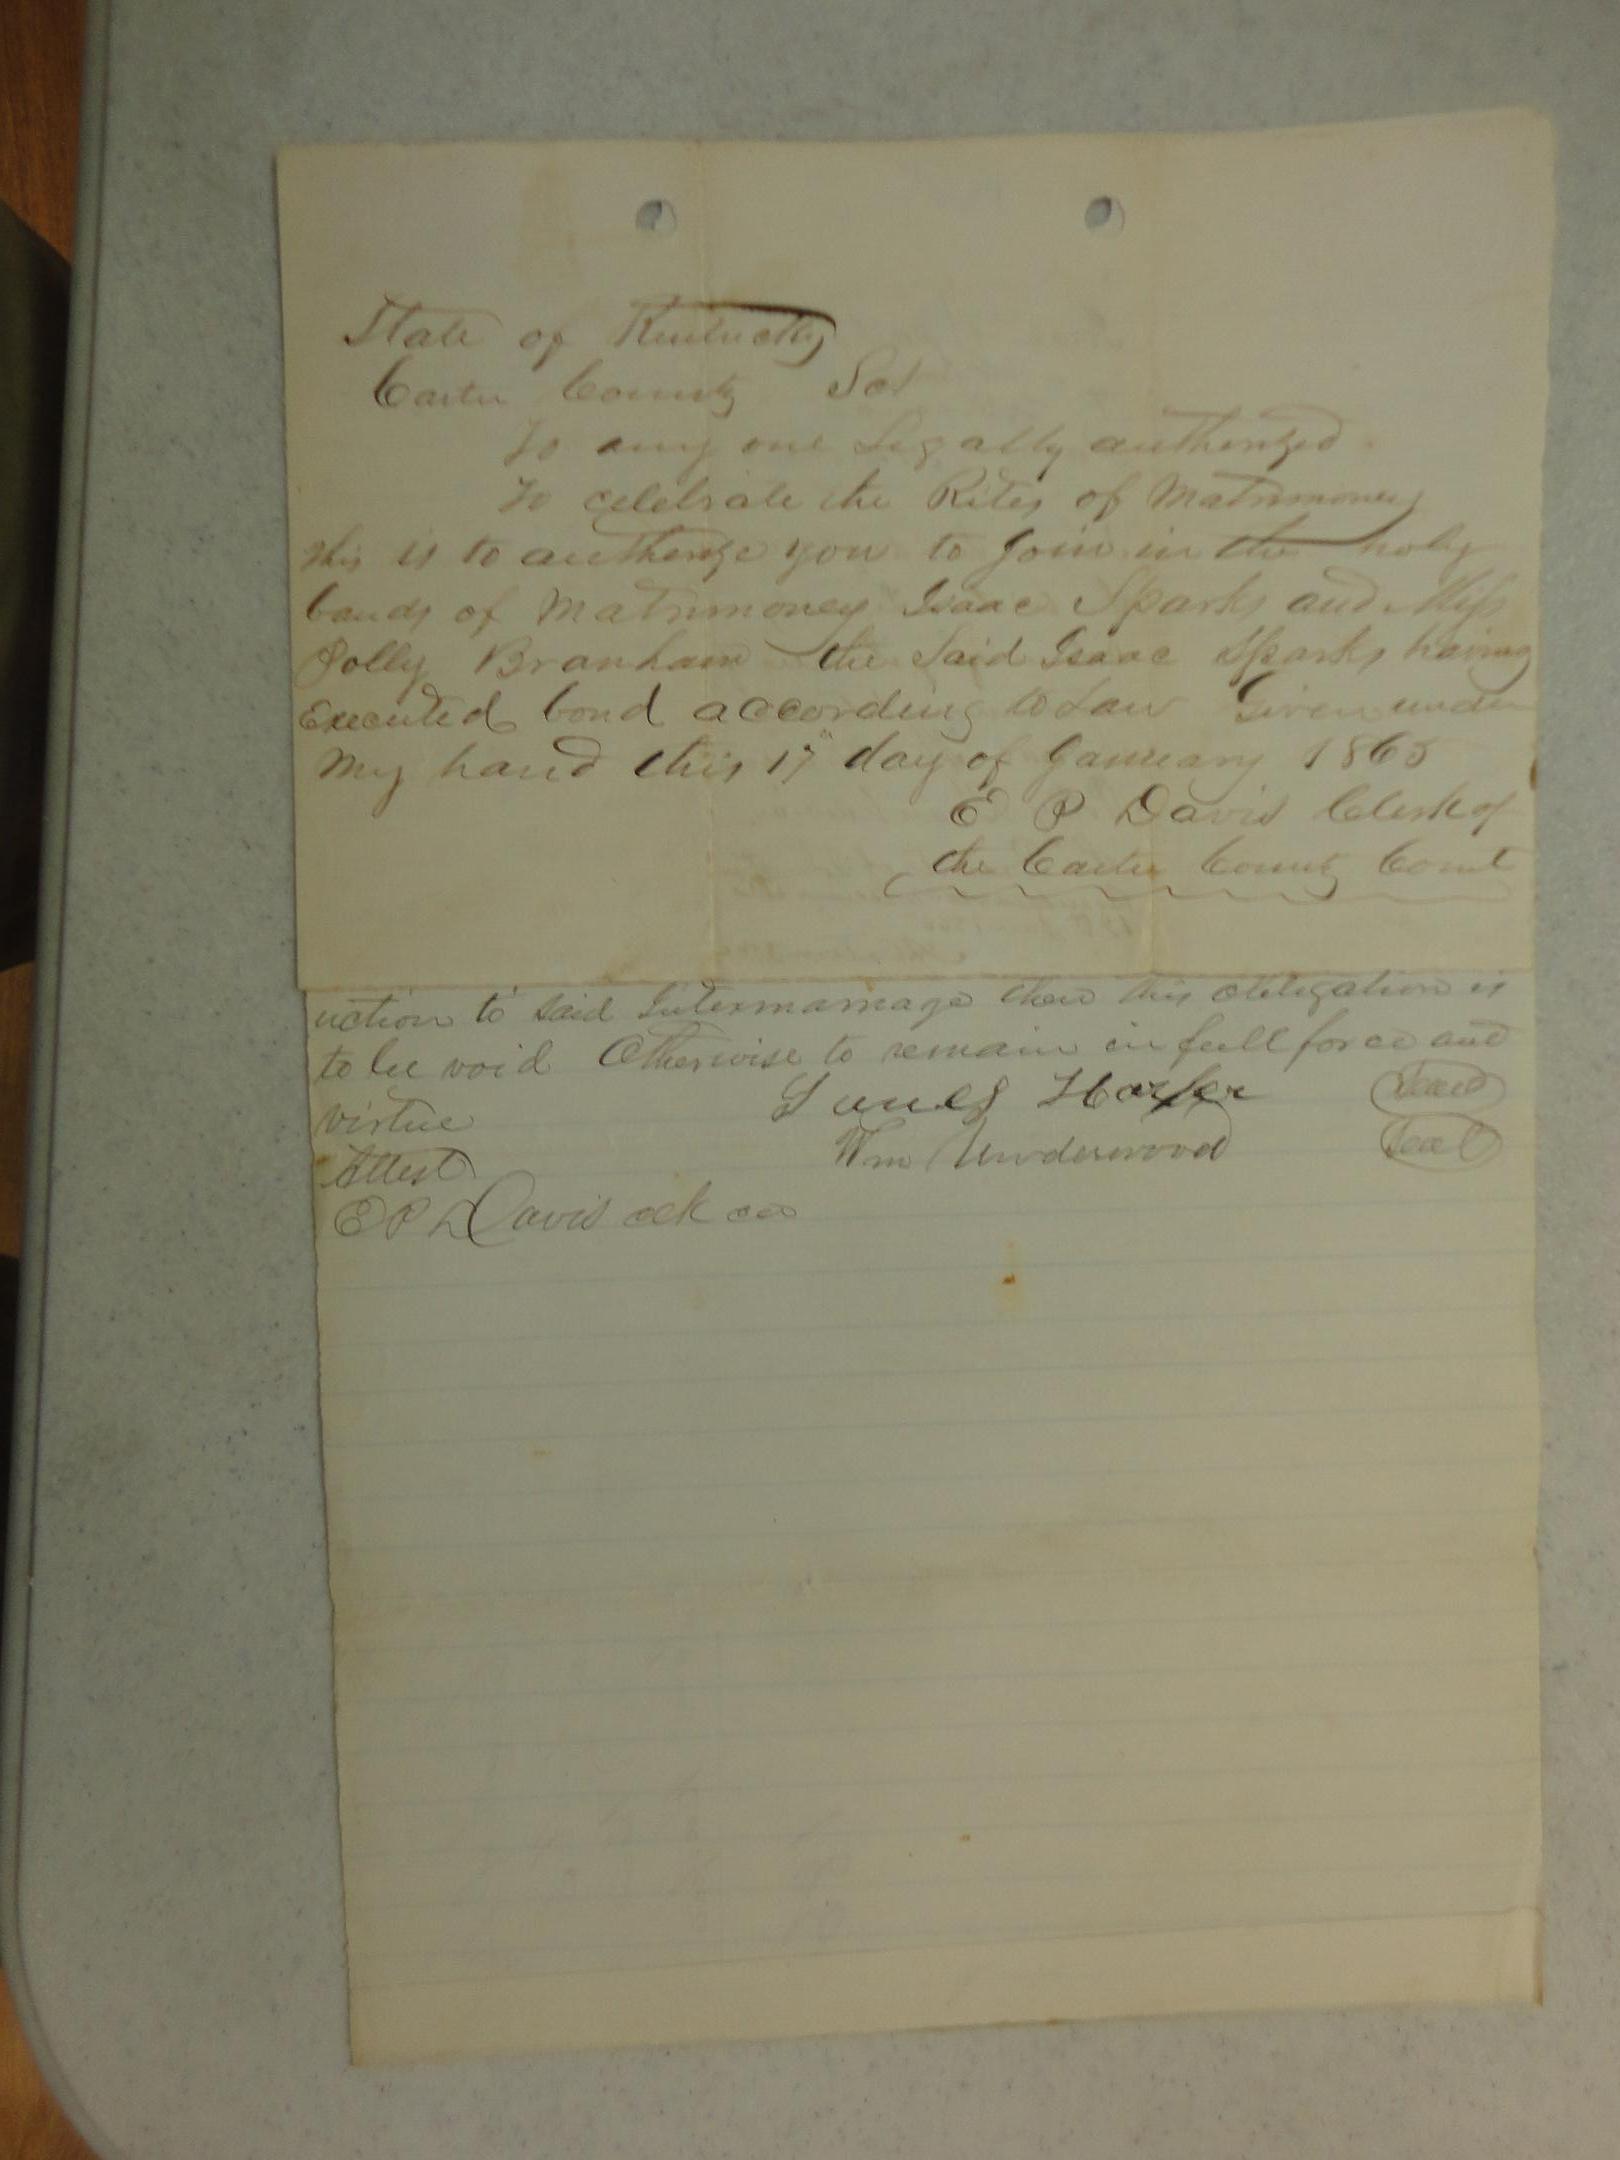 State of Kentucky
Carter County Sct
To any one Legally authorized
To celebrate the Rites of Matrimoney
this is to authorize you to Join in the holy
bands of Matrimoney Isaac Sparks and Miss
Polly Branham the Said Isaac Sparks having
Executed bond according to Law Given under
My hand this 17" day of January 1865
E P Davis Clerk of
the Carter County Court
uction to said Intermarriage then this obligation is
to be void Otherwise to remain in full force and
virtue James Harper Seal
Wm Underwood Seal
Attest
E P Davis clk